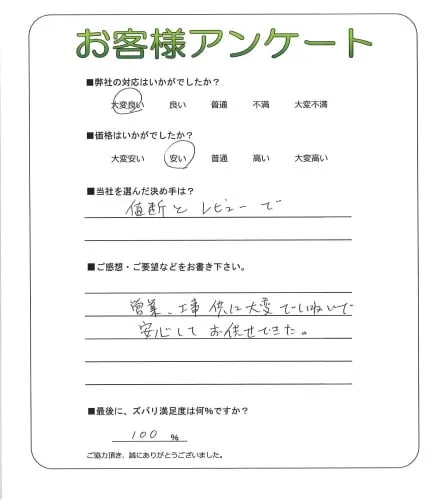 お客様アンケート
■弊社の対応はいかがでしたか？
大変良い 良い 普通 不満 大変不満
■価格はいかがでしたか？
大変安い 安い 普通 高い 大変高い
■当社を選んだ決め手は？
値断と レビューで
■ご感想・ご要望などをお書き下さい。
営業、工事 供に大変ていねいで
安心して お供せできた。
■最後に、ズバリ満足度は何%ですか？
100 %
ご協力頂き、誠にありがとうございました。